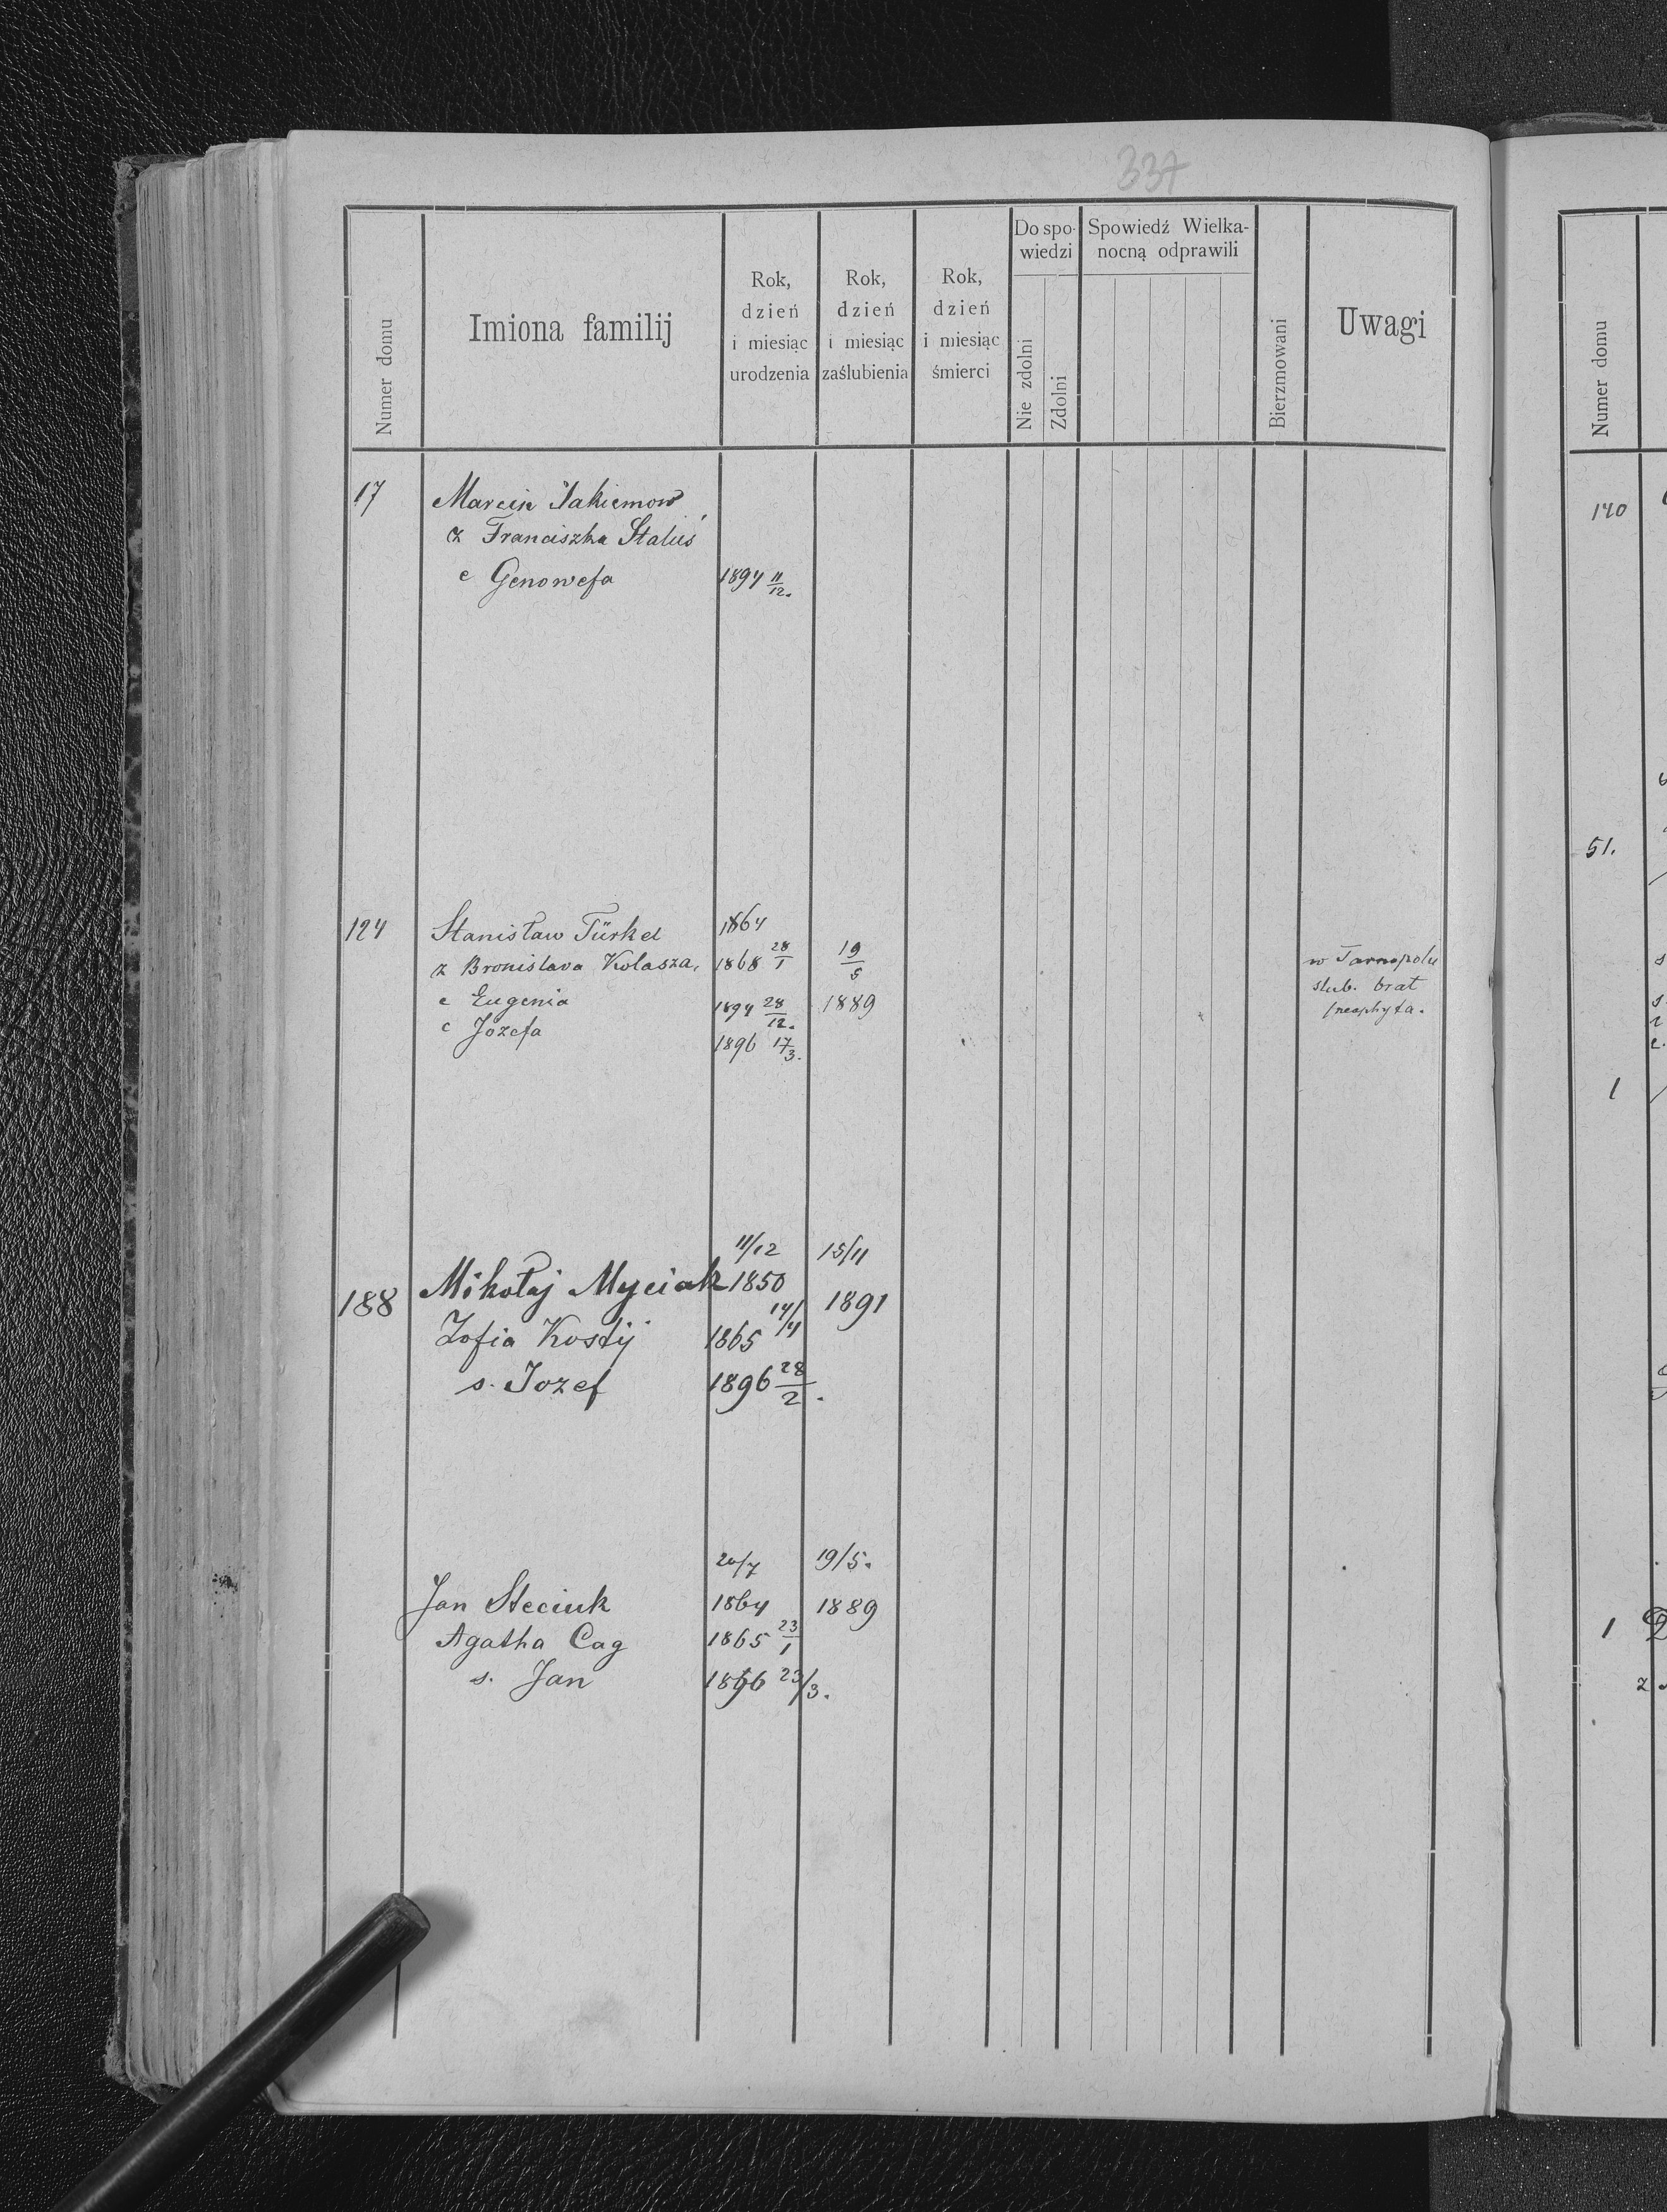 337
Numer domu
Imiona familij
Rok, dzień i miesiąc urodzenia
Rok, dzień i miesiąc zaślubienia
Rok, dzień i miesiąc śmierci
Do spowiedzi
Nie zdolni
Zdolni
Spowiedź Wielkanocną odprawili
Bierzmowani
Uwagi
17 Marcin Jakiemow
ż Franciszka Staluś
c Genowefa 1894 11/12.
124 Stanisław Türkel 1864
ż Bronisłava Kolasza, 1868 28/1 19/5 w Tarnopolu
c Eugenia 1894 28/12. 1889 slub. brał
c Jozefa 1896 17/3. neophyta.
11/12 15/11
188 Mikołaj Myciak 1850 1891
Zofia Kostij 1865 14/4
s. Jozef 1896 28/2.
20/7 19/5.
Jan Steciuk 1864 1889
Agatha Cag 1865 23/1
s. Jan 1896 23/3.
Numer domu
140
51.
1
1